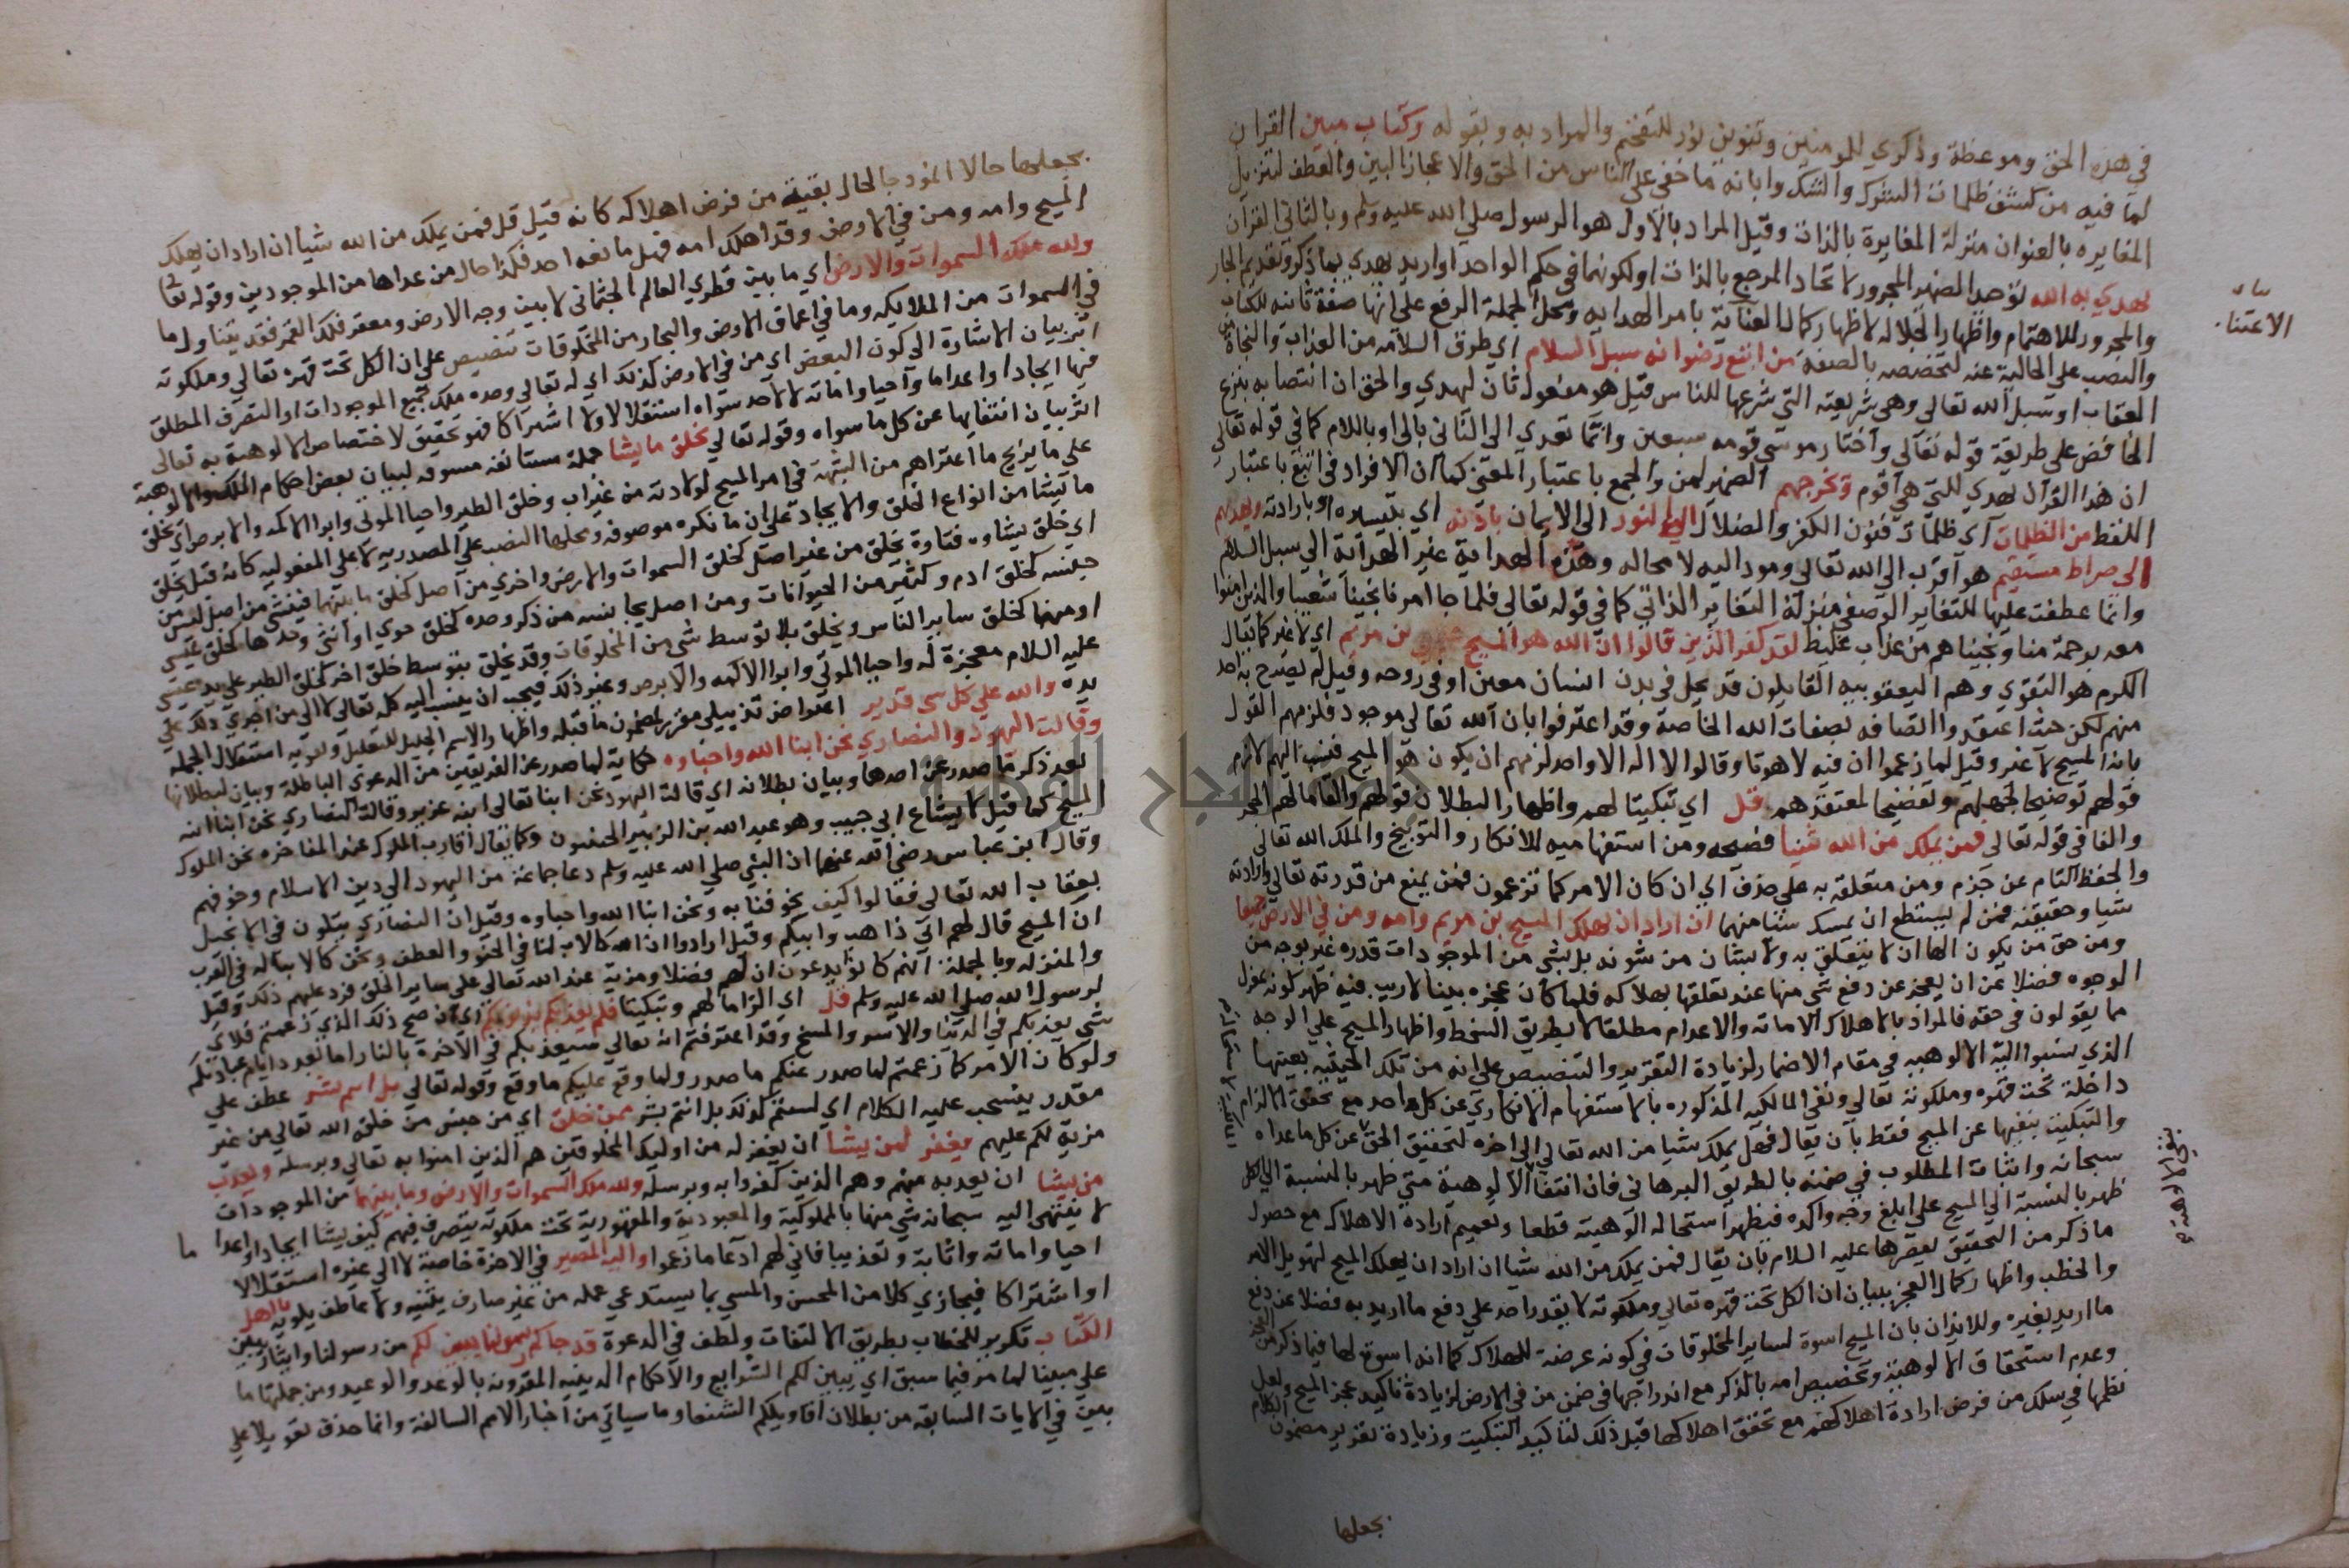 في هذه الحق وموعظة وذكري للمومنين وتنوين نور للتفخيم والمراد به وبقوله وكتاب مبين القران
لما فيه من كشف ظلمات الشرك والشك وابانة ما خفي على الناس من الحق والاعجاز البين والعطف لتنزيل
المغايره بالعنوان منزلة المغايرة بالذات وقيل المراد بالاول هو الرسول صلي الله عليه وسلم وبالثاني القرآن
يهدي به الله توحيد الضمير المجرور لاتحاد المرجع بالذات او لكونهما في حكم الواحد او اريد يهدي بما ذكر وتقديم الجار
والمجرور للاهتمام واظهار الجلاله لاظهار كمال العناية بامر الهدايه ومحل الجملة الرفع على انها صفة ثانيه للكتاب
بيان
الاعتنا
والنصب على الحالية عنه لتخصصه بالصفة من اتبع رضوانه سبل السلام اي طرق السلامه من العذاب والنجاة من
العقاب او سبل الله تعالى وهي شريعته التي شرعها للناس قيل هو مفعول ثان ليهدي والحق ان انتصابه بنزع
الخافض على طريقة قوله تعالى واختار موسى قومه سبعين وانما تعدي الى الثاني بالى او باللام كما في قوله تعالى
ان هذا القرآن يهدي للتي هي اقوم ويخرجهم الضمير لمن والجمع باعتبار المعنى كما ان الافراد في اتبع باعتبار
اللفظ من الظلمات اي ظلمات فنون الكفر والضلال الى النور الى الايمان باذنه اي بتيسيره او بارادته ويهديهم
الى صراط مستقيم هو اقرب الى الله تعالى ومود اليه لا محاله وهذه الهداية عين الهداية الى سبل السلام
وانما عطفت عليها للتغاير الوصفي منزلة التغاير الذاتي كما في قوله تعالى فلما جا امرنا نجينا شعيبا والذين امنوا
معه برحمة منا ونجيناهم من عذاب غليظ لقد كفر الذين قالوا ان الله هو المسيح بن مريم اي لا غير كما يقال
الكرم هو التقوي وهم اليعقوبيه القايلون قد يحل في بدن انسان معين او في روحه وقيل لم يصرح به احد
منهم لكن حيث اعتقدوا اتصافه بصفات الله الخاصة وقد اعترفوا بان الله تعالى موجود فلزمهم القول
بانه المسيح لا غير وقيل لما زعموا ان فيه لاهوتا وقالوا لا اله الا واحد لزمهم ان يكون هو المسيح فنسب اليهم لازم
قولهم توضيحا لجهلهم وتفضيحا لمعتقدهم قل اي تبكيتا لهم واظهارا لبطلان قولهم والقاما لهم الحجر
والفا في قوله تعالى فمن يملك من الله شيئا فصيحه ومن استفهاميه للانكار والتوبيخ والملك الله تعالى
والحفظ التام عن حزم ومن متعلقه به على حذف اي ان كان الامر كما تزعمون فمن يمنع من قدرته تعالى وارادته
شيا وحقيقته فمن لم يستطع ان يمسك شئا منهما ان اراد ان يهلك المسيح بن مريم وامه ومن في الارض جميعا
ومن حق من يكون الها ان لا يتعلق به ولا بشان من شونه بل بشي من الموجودات قدره غير بوجه من
الوجوه فضلا عن ان يعجز عن دفع شي منها عند تعلقها بهلاكه فلما كان عجزه بينا لاريب فيه ظهر كونه بمعزل
مما يقولون في حقه فالمراد بالاهلاك الاماته والاعدام مطلقا لا بطريق السخط واظهار المسيح على الوجه
الذي نسبوا اليه الالوهيه في مقام الاضمار لزيادة التقرير والتنصيص على انه من تلك الحيثيه بعينها
داخلة تحت قهره وملكوته تعالى ونفي المالكيه المذكوره بالاستفهام الانكاري عن كل واحد مع تحقق الالزام
والتبكيت بنفيها عن المسيح فقط بان يقال فهل يملك شيا من الله تعالى الى اخره لتحقيق الحق عن كل ما عداه
سبحانه واثبات المطلوب في ضمنه بالطريق البرهاني فان انتفا الالوهية متي ظهر بالنسبة الى الكل
ظهر بالنسبة الى المسيح على ابلغ وجه واكده فيظهر استحاله الوهيته قطعا وتعميم ارادة الاهلاك مع حصول
ما ذكر من التحقيق بقصرها عليه السلام بان يقال فمن يملك من الله شيا ان اراد ان يهلك المسيح لتهويل الامر
والخطب واظهار كمال العجز ببيان ان الكل تحت قهره تعالى وملكوته لا يقدر احد على دفع ما اريد به فضلا عن دفع
ما اريد بغيره وللايذان بان المسيح اسوة لساير المخلوقات في كونه عرضة للهلاك كما انه اسوة لها فيما ذكر من العجز
وعدم استحقاق الالوهية وتخصيص امه بالذكر مع اندراجها في ضمن من في الارض لزيادة تاكيد عجز المسيح ولعل
نظمها في سلك من فرض ارادة اهلاكهم مع تحقق اهلاكها قبل ذلك لتاكيد التبكيت وزيادة تقرير مضمون الكلام
بجعلها
بجعلها حالا انموذجا لحال بقية من فرض اهلاكه كانه قيل قل فمن يملك من الله شيا ان اراد ان يهلك
المسيح وامه ومن في الارض وقد اهلك امه فهل مانعه احد فكذا حال من عداها من الموجودين وقوله تعالى
ولله ملك السموات والارض اي ما بين قطري العالم الجثماني لا بين وجه الارض ومقعر فلك القمر فقد يتناول ما
في السموات من الملايكه وما في اعماق الارض والبحار من المخلوقات تنصيص على ان الكل تحت قهره تعالى وملكوته
اثر بيان الاشارة الى كون البعض اي من في الارض كذلك اي له تعالى وحده ملك جميع الموجودات او التصرف المطلق
فيها ايجادا واعداما واحيا واماتة لا لاحد سواه استقلالا ولا اشتراكا فهو تحقيق لاختصاص الالوهية به تعالى
اثر بيان انتفايها عن كل ما سواه وقوله تعالى يخلق ما يشا جملة مستانفه مسوقه لبيان بعض احكام الملك والالوهية
على ما يزيح ما اعتراهم من الشبهة في امر المسيح لولادته من غير اب وخلق الطير واحيا الموتى وابرا الاكمه والابرص اي يخلق
ما يشا من انواع الخلق والايجاد على ان ما نكره موصوفه ومحلها النصب على المصدريه لا على المفعوليه كانه قيل يخلق
اي خلق يشاوه فتارة يخلق من غير اصل كخلق السموات والارض واخري من اصل كخلق ما بينهما فينشي من اصل ليس من
جنسه كخلق ادم وكثير من الحيوانات ومن اصل يجانسه من ذكر وحده كخلق حوي او انثى وحدها كخلق عيسى
او منهما كخلق ساير الناس ويخلق بلا توسط شي من المخلوقات وقد يخلق بتوسط خلق اخر كخلق الطير على يد عيسى
عليه السلام معجزة له واحيا الموتى وابرا الاكمه والابرص وغير ذلك فيجب ان ينسب اليه كله تعالى لا الى من اجري ذلك على
يده والله على كل شي قدير اعتراض تذييلي مقرر لمضمون ما قبله واظهار الاسم الجليل للتعليل وتقويه استقلال الجمله
وقالت اليهود والنصاري نحن ابنا الله واحباوه حكاية لما صدر عن الفريقين من الدعوى الباطلة وبيان لبطلانها
بعد ذكر ما صدر عن احدهما وبيان بطلانه اي قالت اليهود نحن ابنا تعالى ابنه عزير وقالت النصاري نحن ابنا ابنه
المسيح كما قيل لاشياع ابي خبيب وهو عبد الله بن الزبير الخبيبون وكما يقال اقارب الملوك عند المفاخره نحن الملوك
وقال ابن عباس رضي الله عنهما ان النبي صلي الله عليه وسلم دعا جماعة من اليهود الى دين الاسلام وخوفهم
بعقاب الله تعالى فقالوا كيف تخوفنا به ونحن ابنا الله واحباوه وقيل ان النصاري يتلون في الانجيل
ان المسيح قال لهم اني ذاهب وابيكم وقيل ارادوا ان الله كالاب لنا في الحنو والعطف ونحن كالابنا له في القرب
والمنزله وبالجملة انهم كانوا يدعون ان لهم فضلا ومزية عند الله تعالى على ساير الخلق فرد عليهم ذلك وقيل
لرسول الله صلي الله عليه وسلم قل اي الزاما لهم وتبكيتا فلم يعذبكم بذنوبكم اي ان صح ذلك الذي زعمتم فلاي
شي يعذبكم في الدنيا والاسر والمسخ وقد اعترفتم انه تعالى سيعذبكم في الاخرة بالنار اياما بعدد ايام عبادتكم
ولو كان الامر كما زعمتم لما صدر عنكم ما صدر ولما وقع عليكم ما وقع وقوله تعالى بل انتم بشر عطف على
مقدر ينسحب عليه الكلام اي لستم كذلك بل انتم بشر ممن خلق اي من جنس من خلقه الله تعالى من غير
مزية لكم عليهم يغفر لمن يشا ان يغفر له من اوليك المخلوقين هم الذين امنوا به تعالى وبرسله ويعذب
من يشا ان يعذبه منهم وهم الذين كفروا به وبرسله ولله ملك السموات والارض وما بينهما من الموجودات
لا ينتهي اليه سبحانه شي منها بالمملوكية والمعبودية والمقهورية تحت ملكوته يتصرف فيهم كيف يشا ايجادا واعداما
احيا واماتة واثابة وتعذيبا فاني لهم ادعا ما زعموا واليه المصير في الاخرة خاصة لا الى غيره استقلالا
او اشتراكا فيجازي كلا من المحسن والمسي بما يستدعي عمله من غير صارف يثنيه ولا عاطف يلويه يااهل
الكتاب تكرير للخطاب بطريق الالتفات ولطف في الدعوة قد جاكم رسولنا يبين لكم من رسولنا وايثار يبين
على مبينا لما مر فيما سبق اي يبين لكم الشرايع والاحكام الدينيه المقرونه بالوعد والوعيد ومن جملتها ما
بين في الايات السابقه من بطلان اقاويلكم الشنعا وما سياتي من اخبار الامم السالفة وانما حذف تعويلا على
جامعة النجاح الوطنية